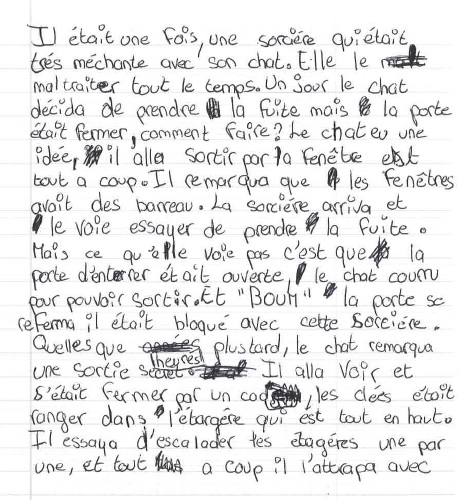 Il était une fois, une sorciére qui était
trés méchante avec son chat. Elle le
maltraiter tout le temps. Un jour le chat
décida de prendre la fuite mais la porte
était fermer, comment faire? Le chat eu une
idée, il alla sortir par la fenêtre et
tout a coup. Il remarqua que les fenêtres
avait des barreau. La sorciére arriva et
le voie essayer de prendre la fuite.
Mais ce qu'elle voie pas c'est que la
porte d'entrer était ouverte, le chat couru
pour pouvoir sortir. Et "BOUM" la porte se
referma il était bloqué avec cette sorciére.
Quelles que heures plus tard, le chat remarqua
une sortie secret. Il alla voir et
s'était fermer par un cod, les clées était
ranger dans l'étargére qui est tout en haut.
Il essaya d'escalader les étagéres une par
une, et tout a coup il l'attrapa avec